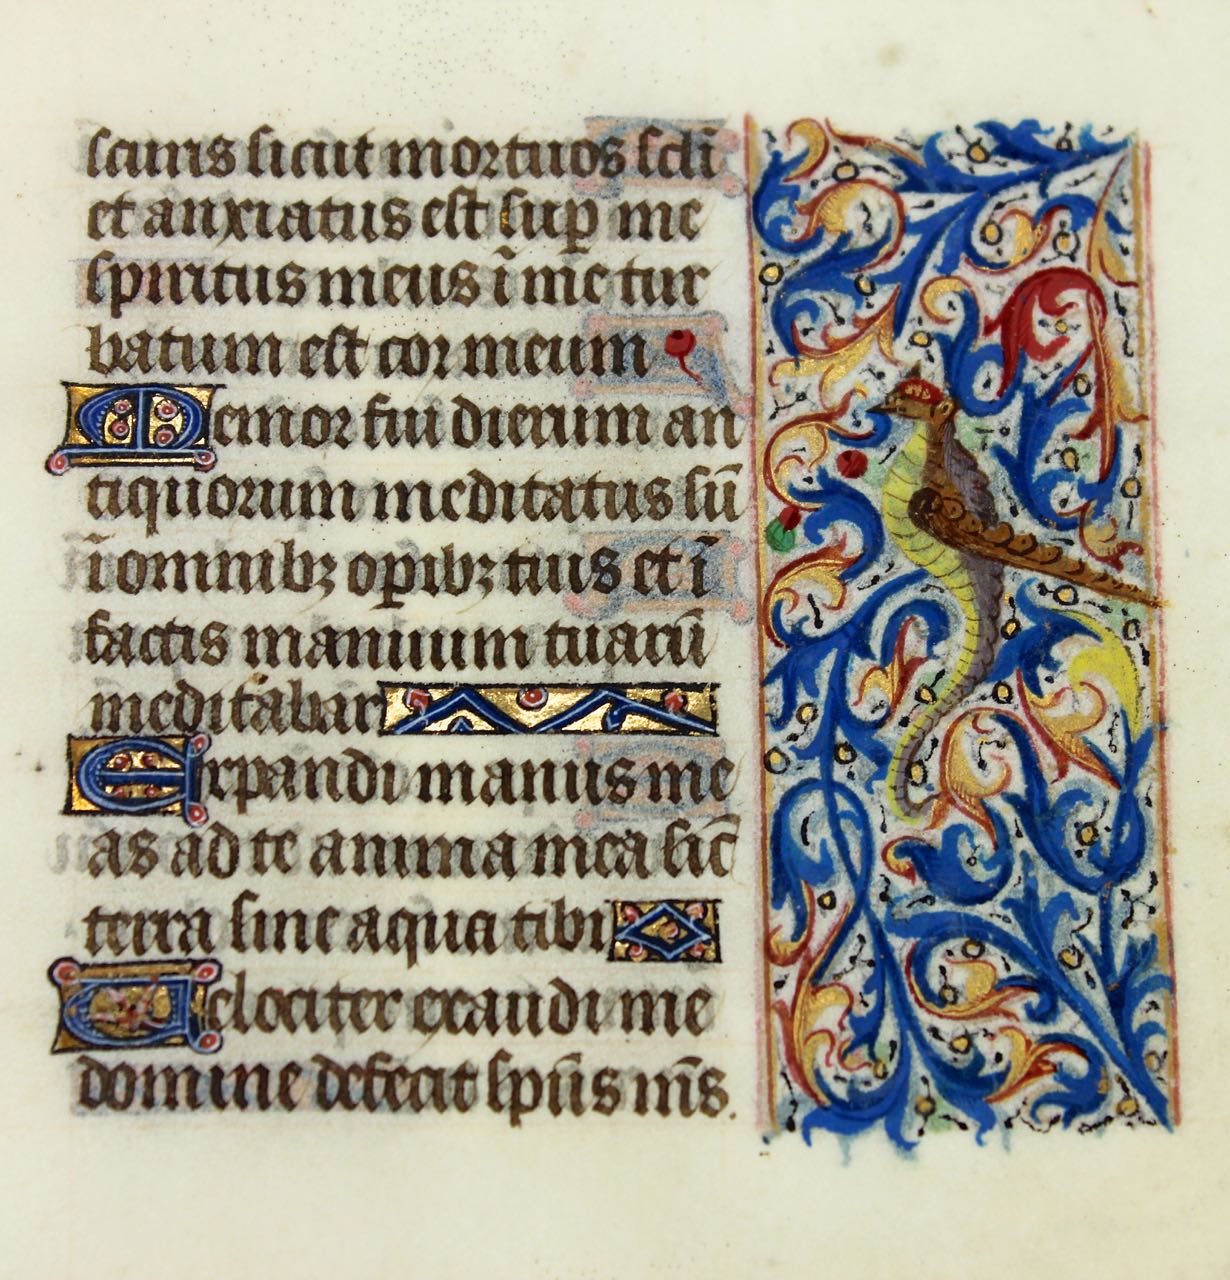 scuris sicut mortuos scli
et anxiatus est sup̱ me
spiritus meus ī me tur
batum est cor meum
Memor fui dierum an
tiquorum meditatus sū
ī omnibꝫ oꝑibꝫ tuis et ī
factis manuum tuarū
meditabar
Expandi manus me
as ad te anima mea sic̄
terra sine aqua tibi
Velociter exaudi me
domine defecit sp̄us m̄s.